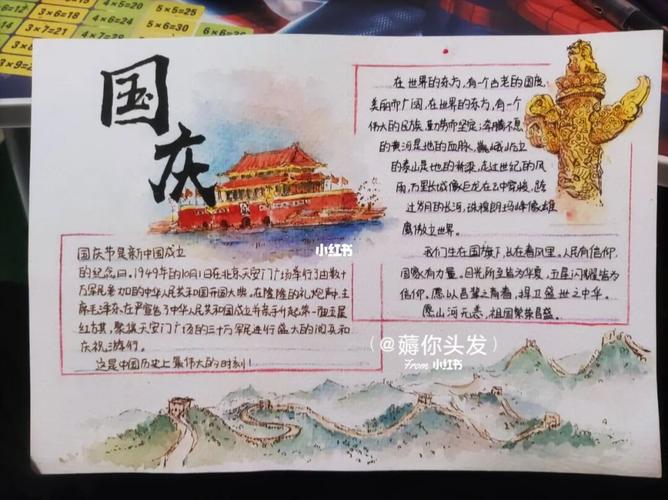 5×5=25
5×6=
4×5=20
4×6=24
3×7=21
3×8=24
3×9=2
国庆
在世界的东方,有一个古老的国度,
美丽而广阔,在世界的东方,有一个
伟大的民族,勤劳而坚定;奔腾不息
的黄河是她的血脉,巍峨屹立
的泰山是她的脊梁,走过世纪的风
雨,万里长城像巨龙在云中穿梭,跨
过岁月的长河,珠穆朗玛峰像雄
鹰傲立世界。
我们生在国旗下,长在春风里。人民有信仰,
国家有力量。目光所至皆为华夏,五星闪耀皆为
信仰。愿以吾辈之青春,捍卫盛世之中华。
愿山河无恙,祖国繁荣昌盛。
小红书
国庆节是新中国成立
的纪念日。1949年的10月1日在北京天安门广场举行了由数十
万军民参加的中华人民共和国开国大典。在隆隆的礼炮声中,主
席毛泽东在严宣告了中华人民共和国成立并亲手升起第一面五星
红旗,聚集天安门广场的三十万军民进行盛大的阅兵和
庆祝游行。
这是中国历史上最伟大的时刻!
(@薅你头发)
From 小红书